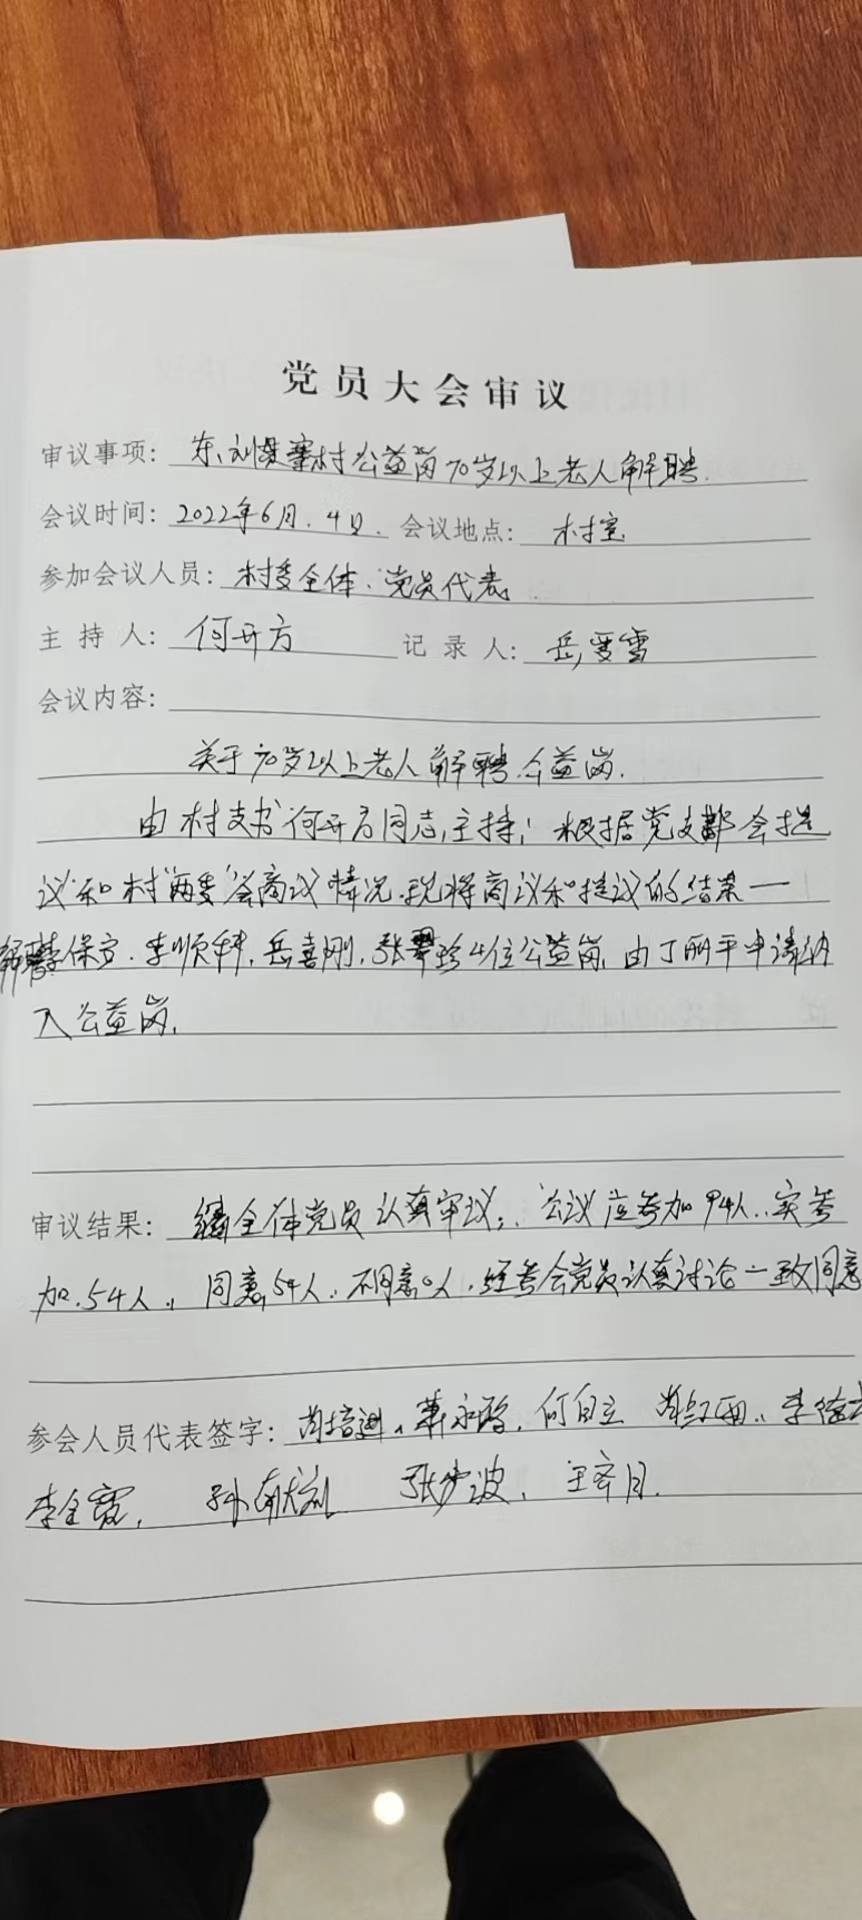 党员大会审议
审议事项: 东刘寨村公益岗70岁以上老人解聘.
会议时间: 2022年6月.4日. 会议地点: 村室
参加会议人员: 村委全体、党员代表。
主持人: 何开方 记录人: 岳雪
会议内容:
关于70岁以上老人解聘公益岗.
由村支书何开方同志主持; 根据党支部会提
议和村"两委"会商议情况.现将商议和提议的结果一
解聘李保方.李顺科,岳喜刚,张翠珍4位公益岗,由丁丽平申请纳
入公益岗,
审议结果: 经全体党员认真审议,会议应参加94人,实参
加.54人, 同意54人,不同意0人,经与会党员认真讨论一致同意
参会人员代表签字: 何自立
李全 孙 张 波, 王齐月.